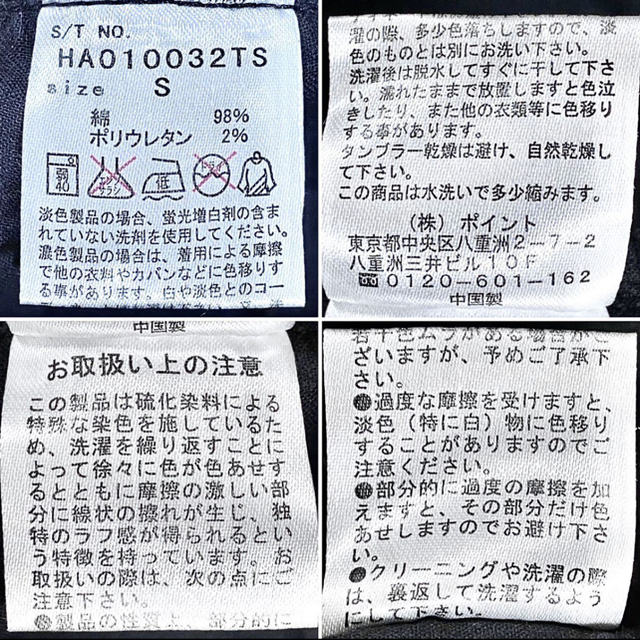 S/T NO.
HA010032TS
size S
綿 98%
ポリウレタン 2%
弱
40
エンソ
サラシ
低
ドライ
淡色製品の場合、蛍光増白剤の含ま
れていない洗剤を使用してください。
濃色製品の場合は、着用による摩擦
で他の衣料やカバンなどに色移りす
る事があります。白や淡色とのコー
濯の際、多少色落ちしますので、淡
色のものとは別にお洗い下さい。
洗濯後は脱水してすぐに干して下さ
い。濡れたままで放置しますと色泣
きしたり、また他の衣類等に色移り
する事があります。
タンブラー乾燥は避け、自然乾燥し
て下さい。
この商品は水洗いで多少縮みます。
(株) ポイント
東京都中央区八重洲2-7-2
八重洲三井ビル10F
0120-601-162
中国製
中国製
お取扱い上の注意
この製品は硫化染料による
特殊な染色を施しているた
め、洗濯を繰り返すことに
よって徐々に色が色あせす
るとともに摩擦の激しい部
分に線状の擦れが生じ、独
特のラフ感が得られるとい
う特徴を持っています。お
取扱いの際は、次の点にご
注意下さい。
●製品の性質上、部分的に
若干色ムラがある場合がご
ざいますが、予めご了承下
さい。
●過度な摩擦を受けますと、
淡色(特に白)物に色移り
することがありますのでご
注意ください。
●部分的に過度の摩擦を加
えますと、その部分だけ色
あせしますのでお避け下さ
い。
●クリーニングや洗濯の際
は、裏返して洗濯するよう
にして下さい。